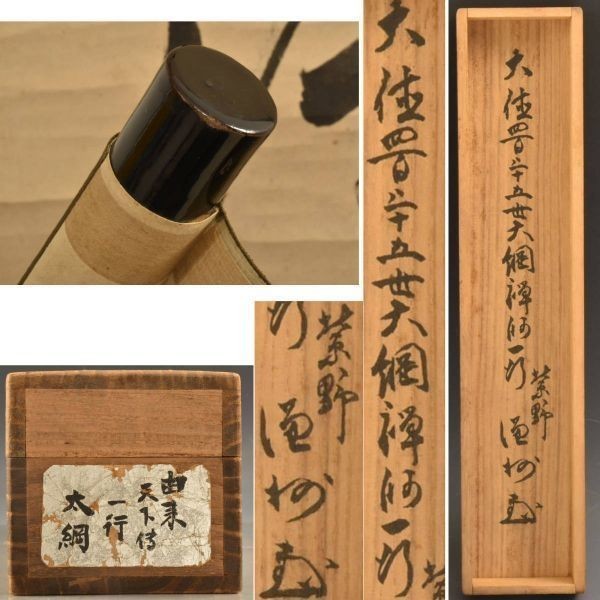 大徳四百三十五世大綱禅師一行
紫野
大徳四百三十五世大綱禅師一行
紫野
紫野
行
由来
天下傳
一行
太綱